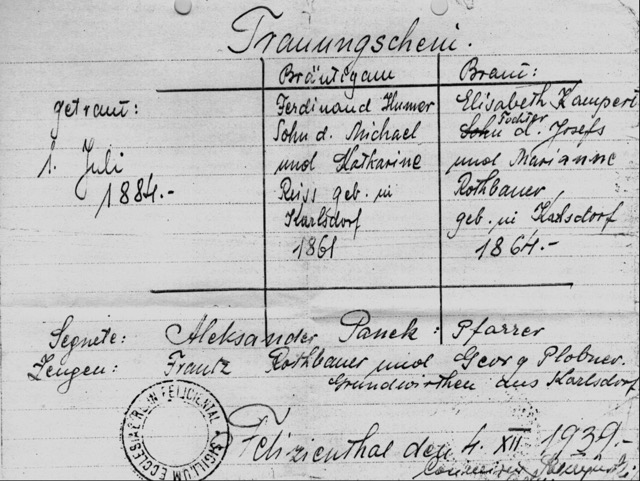 Trauungschein.
Bräutigam Braut:
getraut: Ferdinand Humer Elisabeth Kampert
Sohn d. Michael Tochter d. Josefs
1. Juli und Katharine und Marianne
1884.- Reiss geb. in Rothbauer
Karlsdorf geb. in Karlsdorf
1861 1864.-
Segnete: Aleksander Panek: Pfarrer
Zeugen: Frantz Rothbauer und Georg Plobner.
Grundwirthen aus Karlsdorf
Felizienthal den 4. XII 1939.-
SIGILLUM ECCLESIAE FELICIENTAL